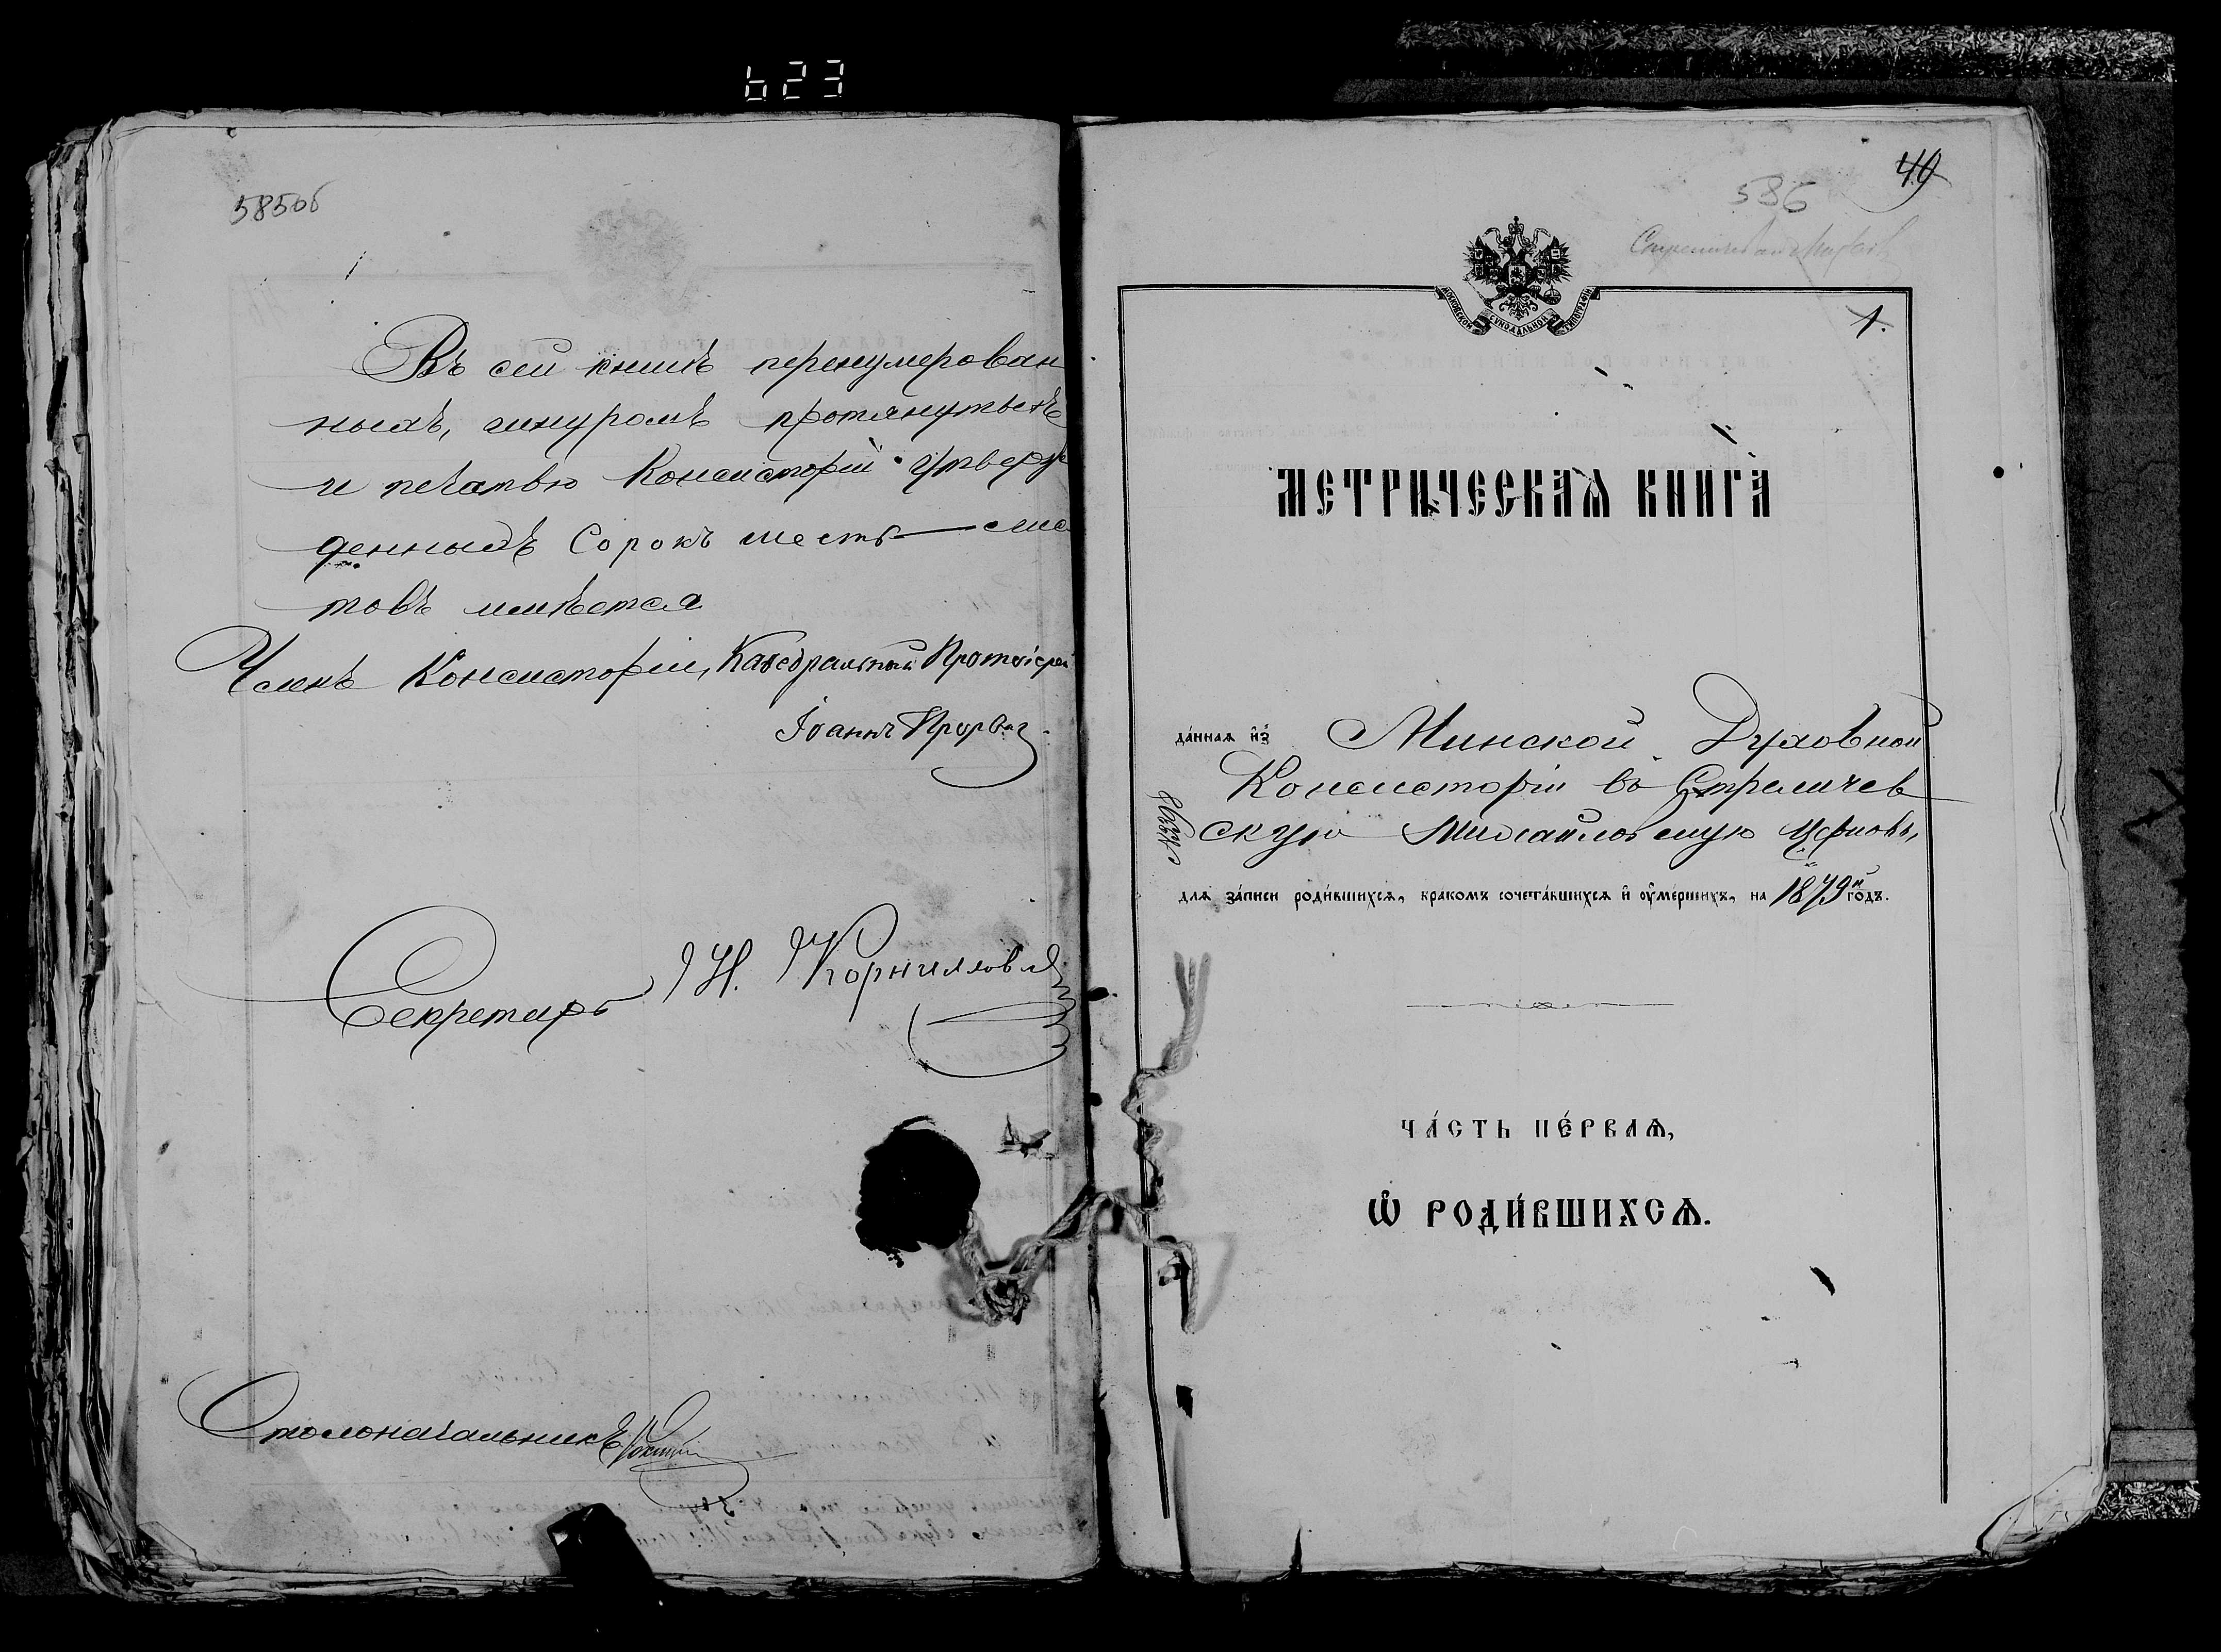 623
585об
Въ сей книгѣ перенумерован
ныхъ, шнуромъ протянутыхъ
и печатью Консисторіи утверж
денныхъ Сорокъ шесть лис
товъ имѣется
Членъ Консисторіи, Каѳедральный Протоіерей
Іоаннъ
Секретарь Н. Корниловъ
Столоначальникъ
49
586
МОСКОВСКОЙ СѴНОДАЛЬНОЙ ТИПОГРАФІИ
1.
МЕТРИ́ЧЕСКАѦ КНИ́ГА
да́ннаѧ и҆з̾ Минской Духовной
Консисторіи въ Стреличев
скую Михайловскую Церковь,
длѧ за́писи роди́вшихсѧ, бракомъ сочета́вшихсѧ и҆ ᲂу҆ме́ршихъ, на 1879й го́дъ.
ЧА́СТЬ ПЕ́РВАѦ,
Ѽ РОДИ́ВШИХСѦ.